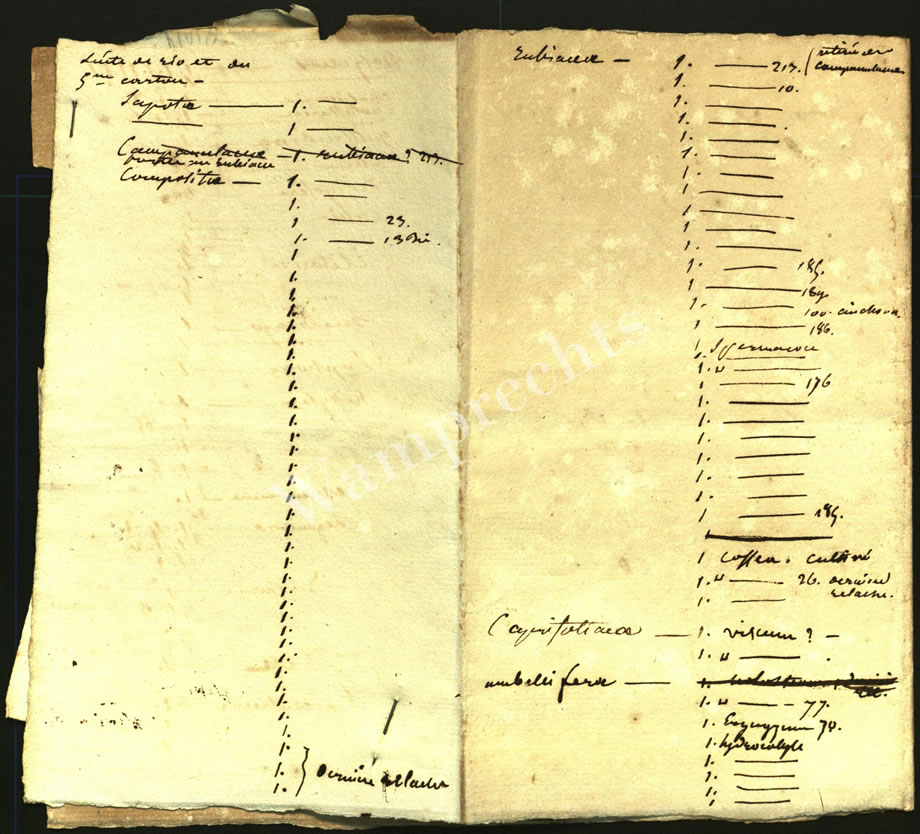 Suite de rio et du
5me carton -
Sapotae — 1. —
1 —
Campanulaceae — 1. rubiacea? 213.
Compositae — 1. —
1. —
1 — 23.
1. — 13 bis.
1
1.
1.
1.
1.
1.
1.
1.
1.
1.
1.
1.
1.
1.
1.
1.
1.
1.
1.
1.
1.
1.
1.
1.
1.
1.
1.
1.
1.
1. } Dernière relache
1.
Rubiaceae — 1. — 213. (retiré des
campanulacees
1. — 10.
1. —
1. —
1. —
1. —
1. —
1. —
1. —
1. —
1. — 185.
1 — 189.
1. — 100. cinchona.
1 — 186.
1 Spermacoce
1. " —
1 — 176
1. —
1. —
1. —
1. —
1. —
1 — 185.
1 Coffea. cultivé
1. " — 26. dernière
relache.
1. —
Caprifoliaceae — 1. viscum? -
1. " — .
umbelliferae — 1.
1. " — 77.
1. Eryngyum 78.
1. hydrocotyle
1. —
1. —
1. —
Wamprechts